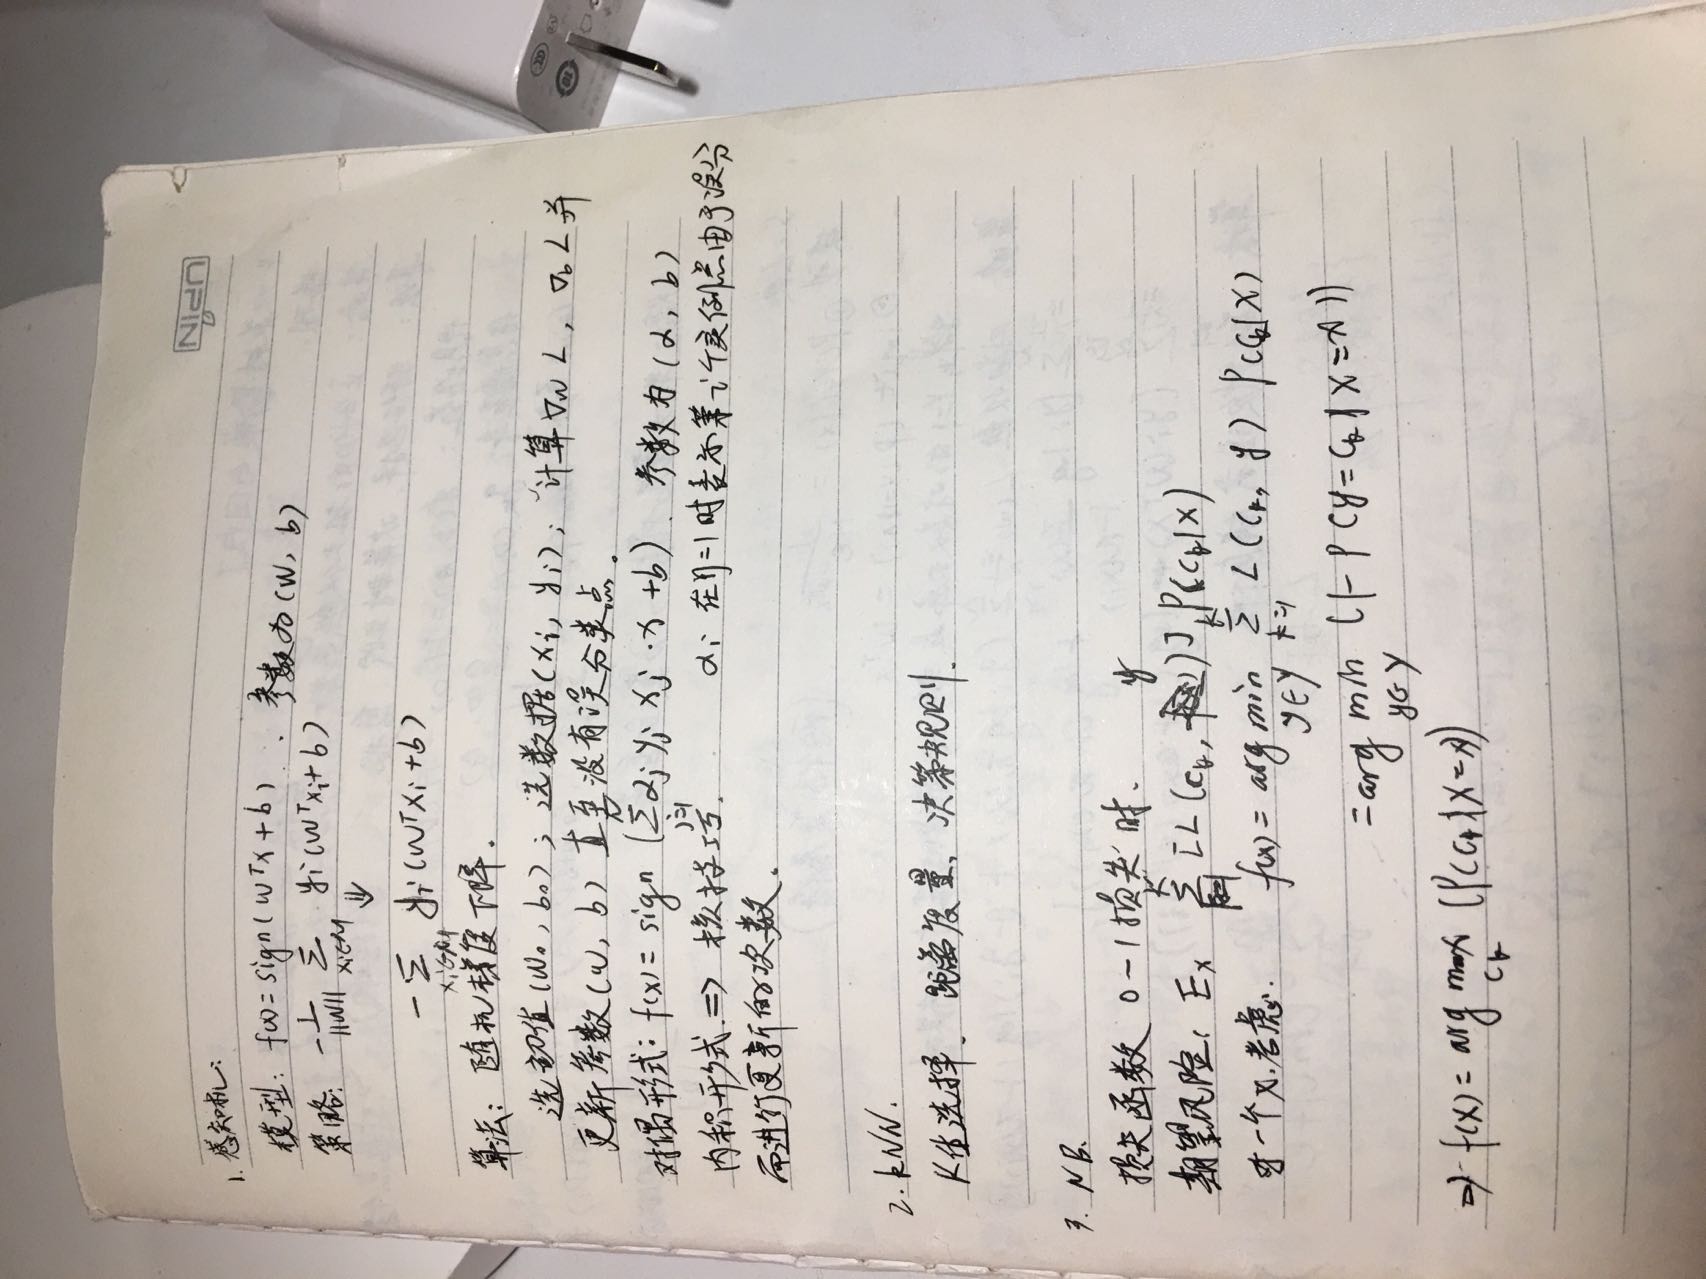 UPIN
1. 感知机:
模型: f(x) = sign(wᵀx + b). 参数为(w, b)
策略: -1/||w|| Σ_{xi∈M} yi(wᵀxi + b)
⇓
-Σ_{xi∈M} yi(wᵀxi + b)
算法: 随机梯度下降.
选初值(w₀, b₀); 选数据(xi, yi); 计算∇wL, ∇bL并
更新参数(w, b)直至没有误分类点.
对偶形式: f(x) = sign(Σ_{j=1}^{N} αj yj xj · x + b). 参数为(α, b)
内积形式. => 核技巧. αi 在η=1时表示第i个实例点由于误分
而进行更新的次数.
2. kNN.
K值选择. 距离度量, 决策规则.
3. NB.
损失函数 0-1损失时.
期望风险: Ex Σ_{k=1}^{K} [L(ck, y)] P(ck|X)
对一个x.考虑. f(x) = arg min_{y∈Y} Σ_{k=1}^{K} L(ck, y) P(ck|X)
= arg min_{y∈Y} (1 - P(y=ck|X=x))
=> f(x) = arg max_{ck} (P(ck|X=x))